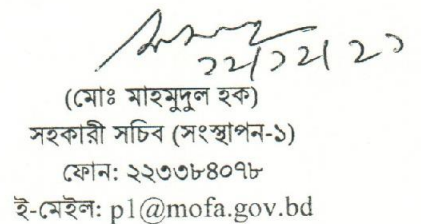 ২২/১২/২১
(মোঃ মাহমুদুল হক)
সহকারী সচিব (সংস্থাপন-১)
ফোন: ২২৩৩৮৪০৭৮
ই-মেইল: p1@mofa.gov.bd